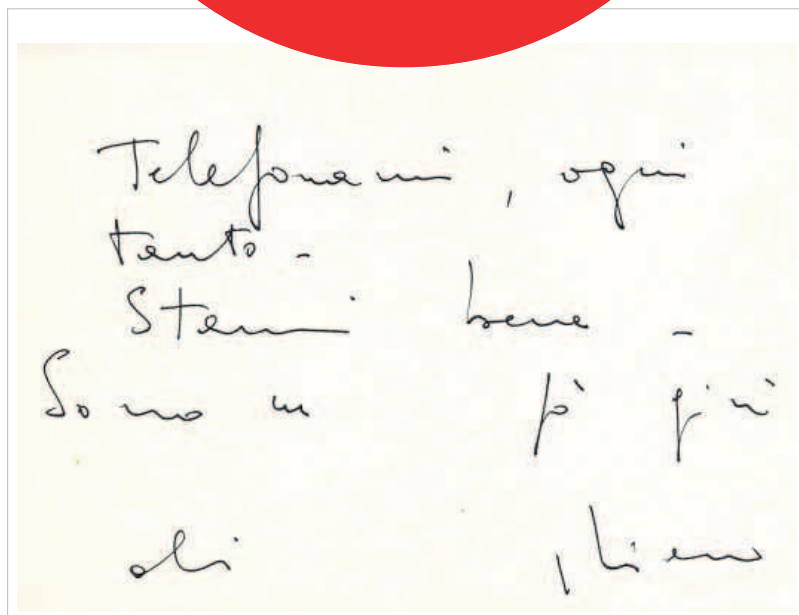 Telefonami, ogni
tanto -
Stammi bene -
Sono un pò giù
di